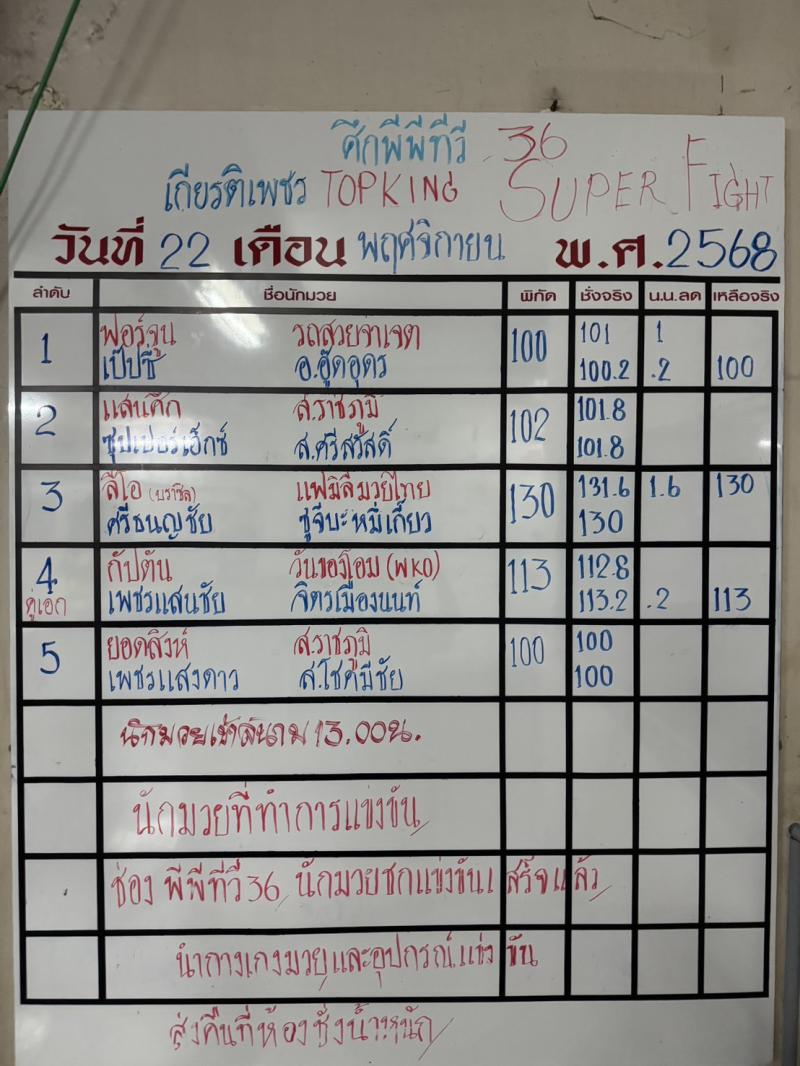 ศึกพีพีทีวี 36
เกียรติเพชร TOPKING SUPER FIGHT
วันที่ 22 เดือน พฤศจิกายน พ.ศ.2568
ลำดับ ชื่อนักมวย พิกัด ชั่งจริง น.น.ลด เหลือจริง
1 ฟอร์จูน รถสวยจาเจต 100 101 1
เป๊ปซี่ อ.อู๊ดอุดร 100.2 .2 100
2 แสนศึก ส.ราชภูมิ 102 101.8
ซุปเปอร์เอ็กซ์ ส.ศรีสวัสดิ์ 101.8
3 ลีโอ (บราซิล) แฟมิลี่มวยไทย 130 131.6 1.6 130
ศรีธนญชัย ชูจีบะหมี่เกี๊ยว 130
4 กัปตัน วันของโอม (WKO) 113 112.8
คู่เอก เพชรแสนชัย จิตรเมืองนนท์ 113.2 .2 113
5 ยอดสิงห์ ส.ราชภูมิ 100 100
เพชรแสงดาว ส.โชคมีชัย 100
นักมวยเข้าสนาม 13.00น.
นักมวยที่ทำการแข่งขัน
ช่อง พีพีทีวี 36 นักมวยชกแข่งขันเสร็จแล้ว
นำกางเกงมวยและอุปกรณ์แข่งขัน
ส่งคืนที่ห้องชั่งน้ำหนัก